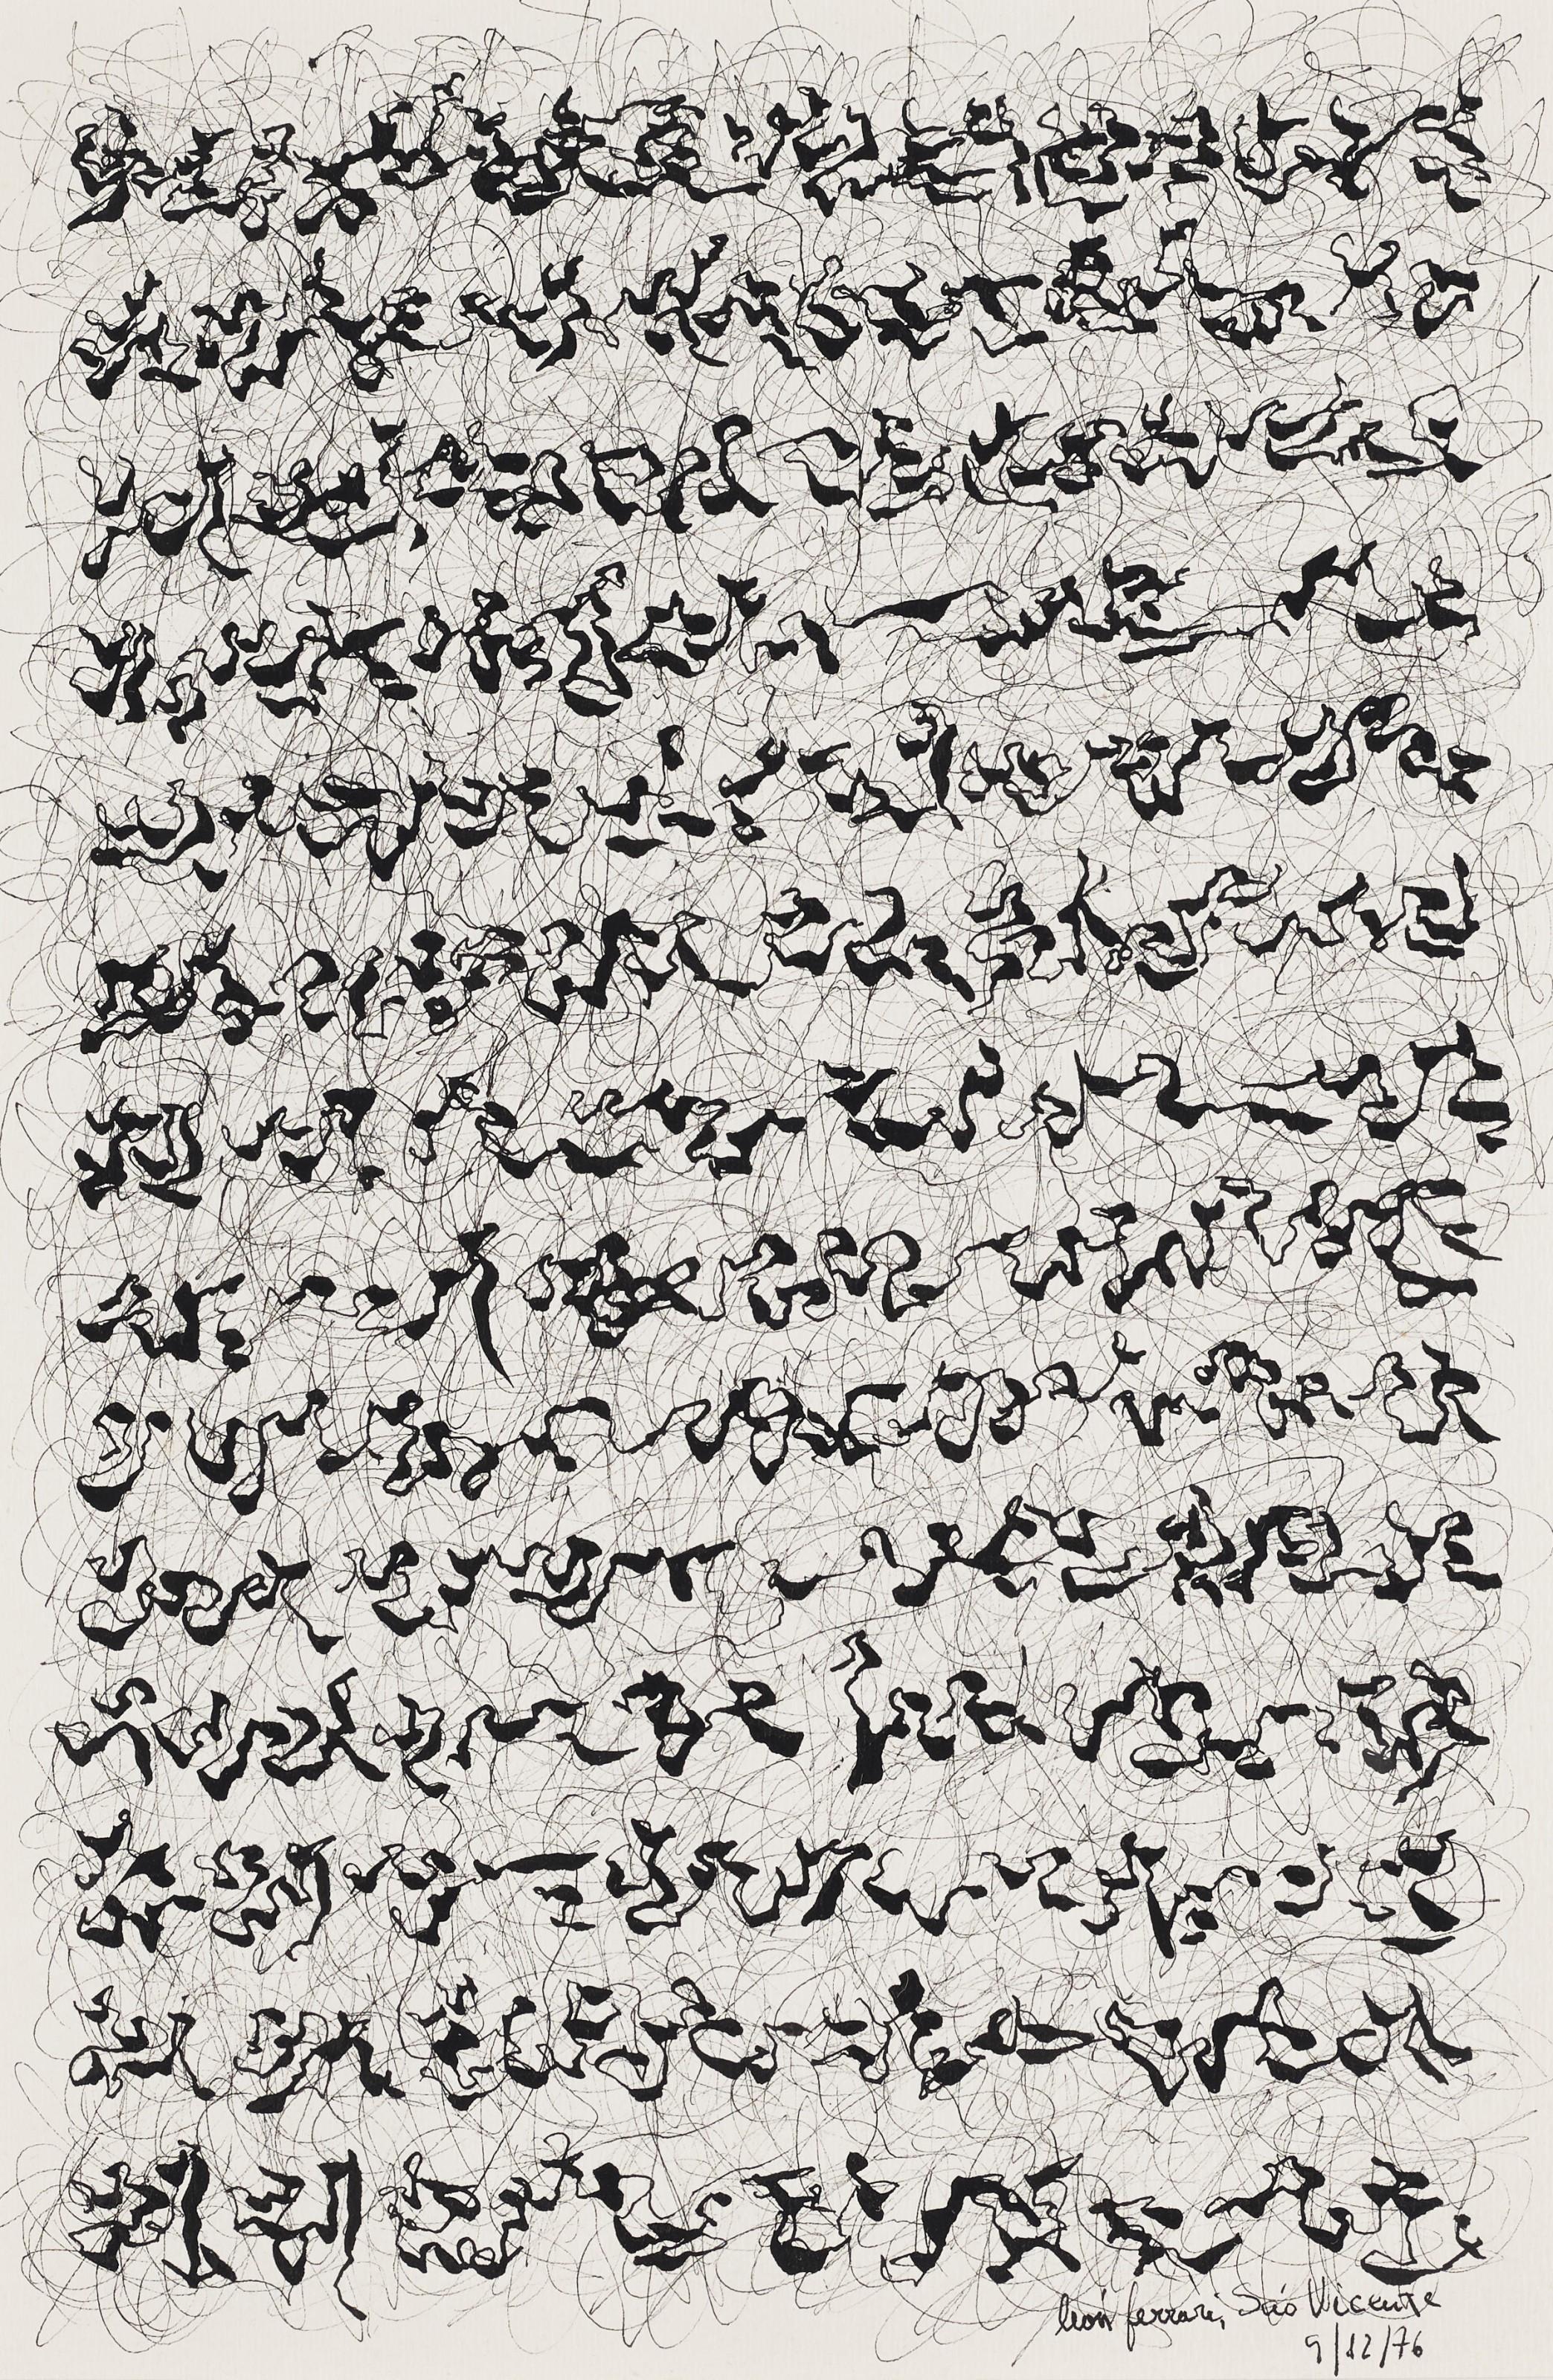 león ferrari, São Vicente
9/12/76